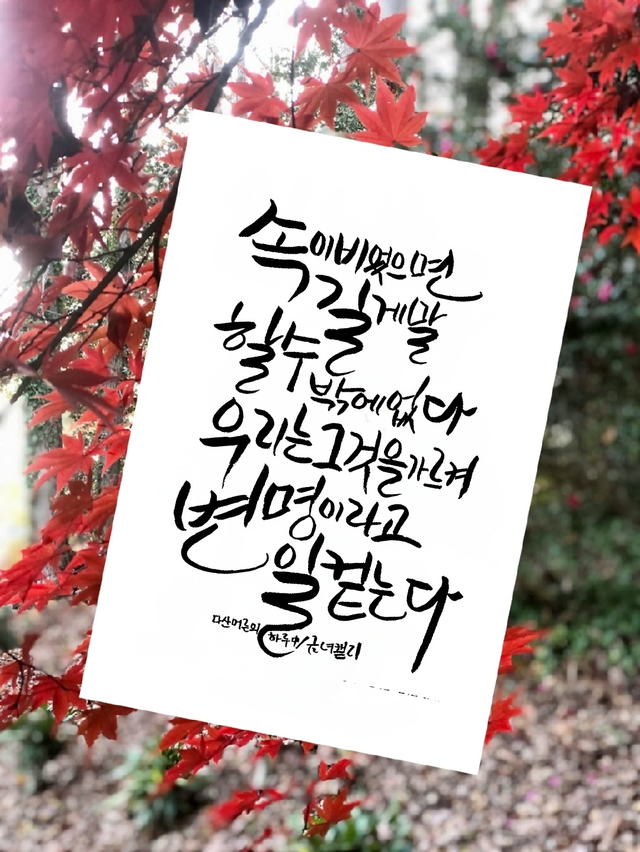 속이비었으면
길게말
할수
밖에없다
우리는그것을가르켜
변명이라고
일컫는다
다산어른의 하루中/근녀캘리